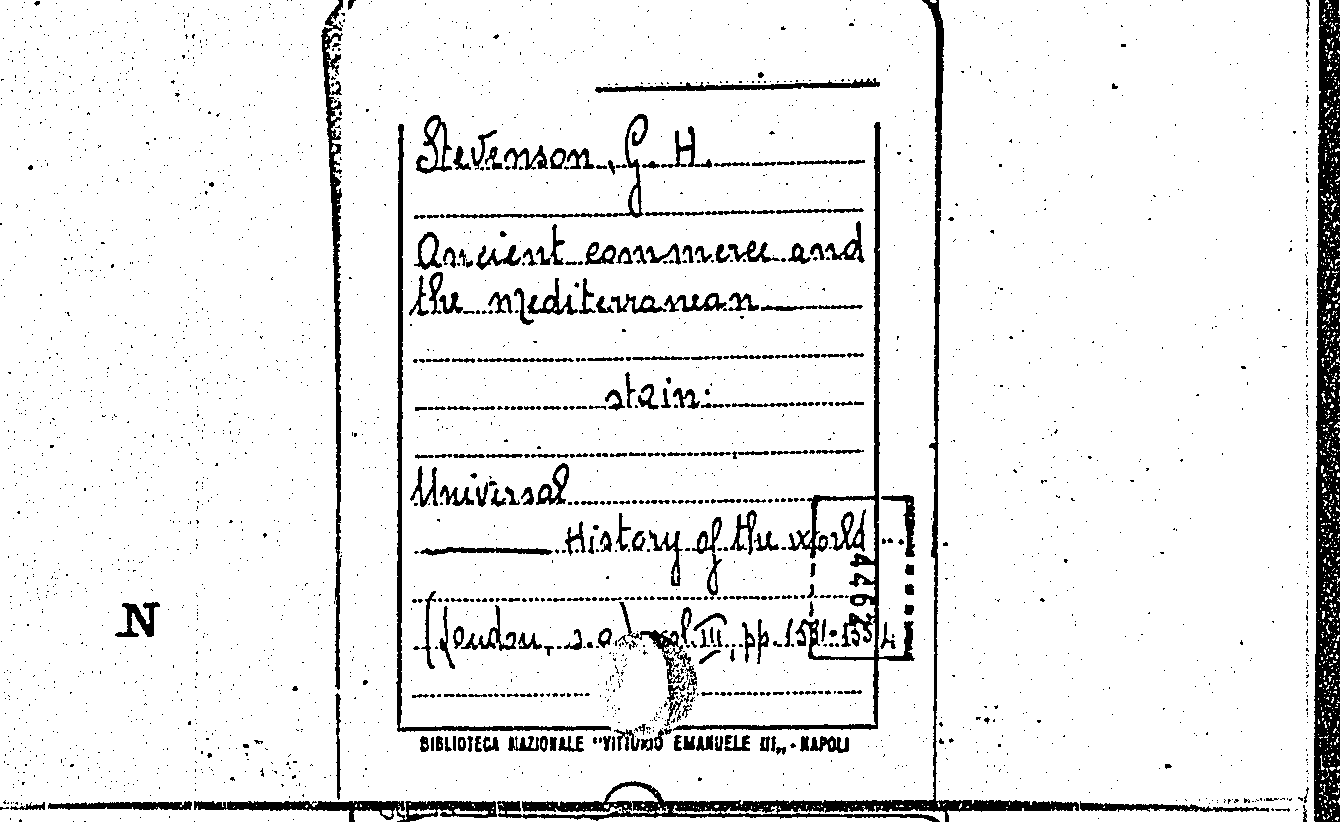 Stevenson, G. H.
Ancient commerce and
the mediterranean
sta in:
Universal
History of the world
(London, s.a.) vol. III, pp. 1531-1554
4462
N
BIBLIOTECA NAZIONALE "VITTORIO EMANUELE III„ - NAPOLI